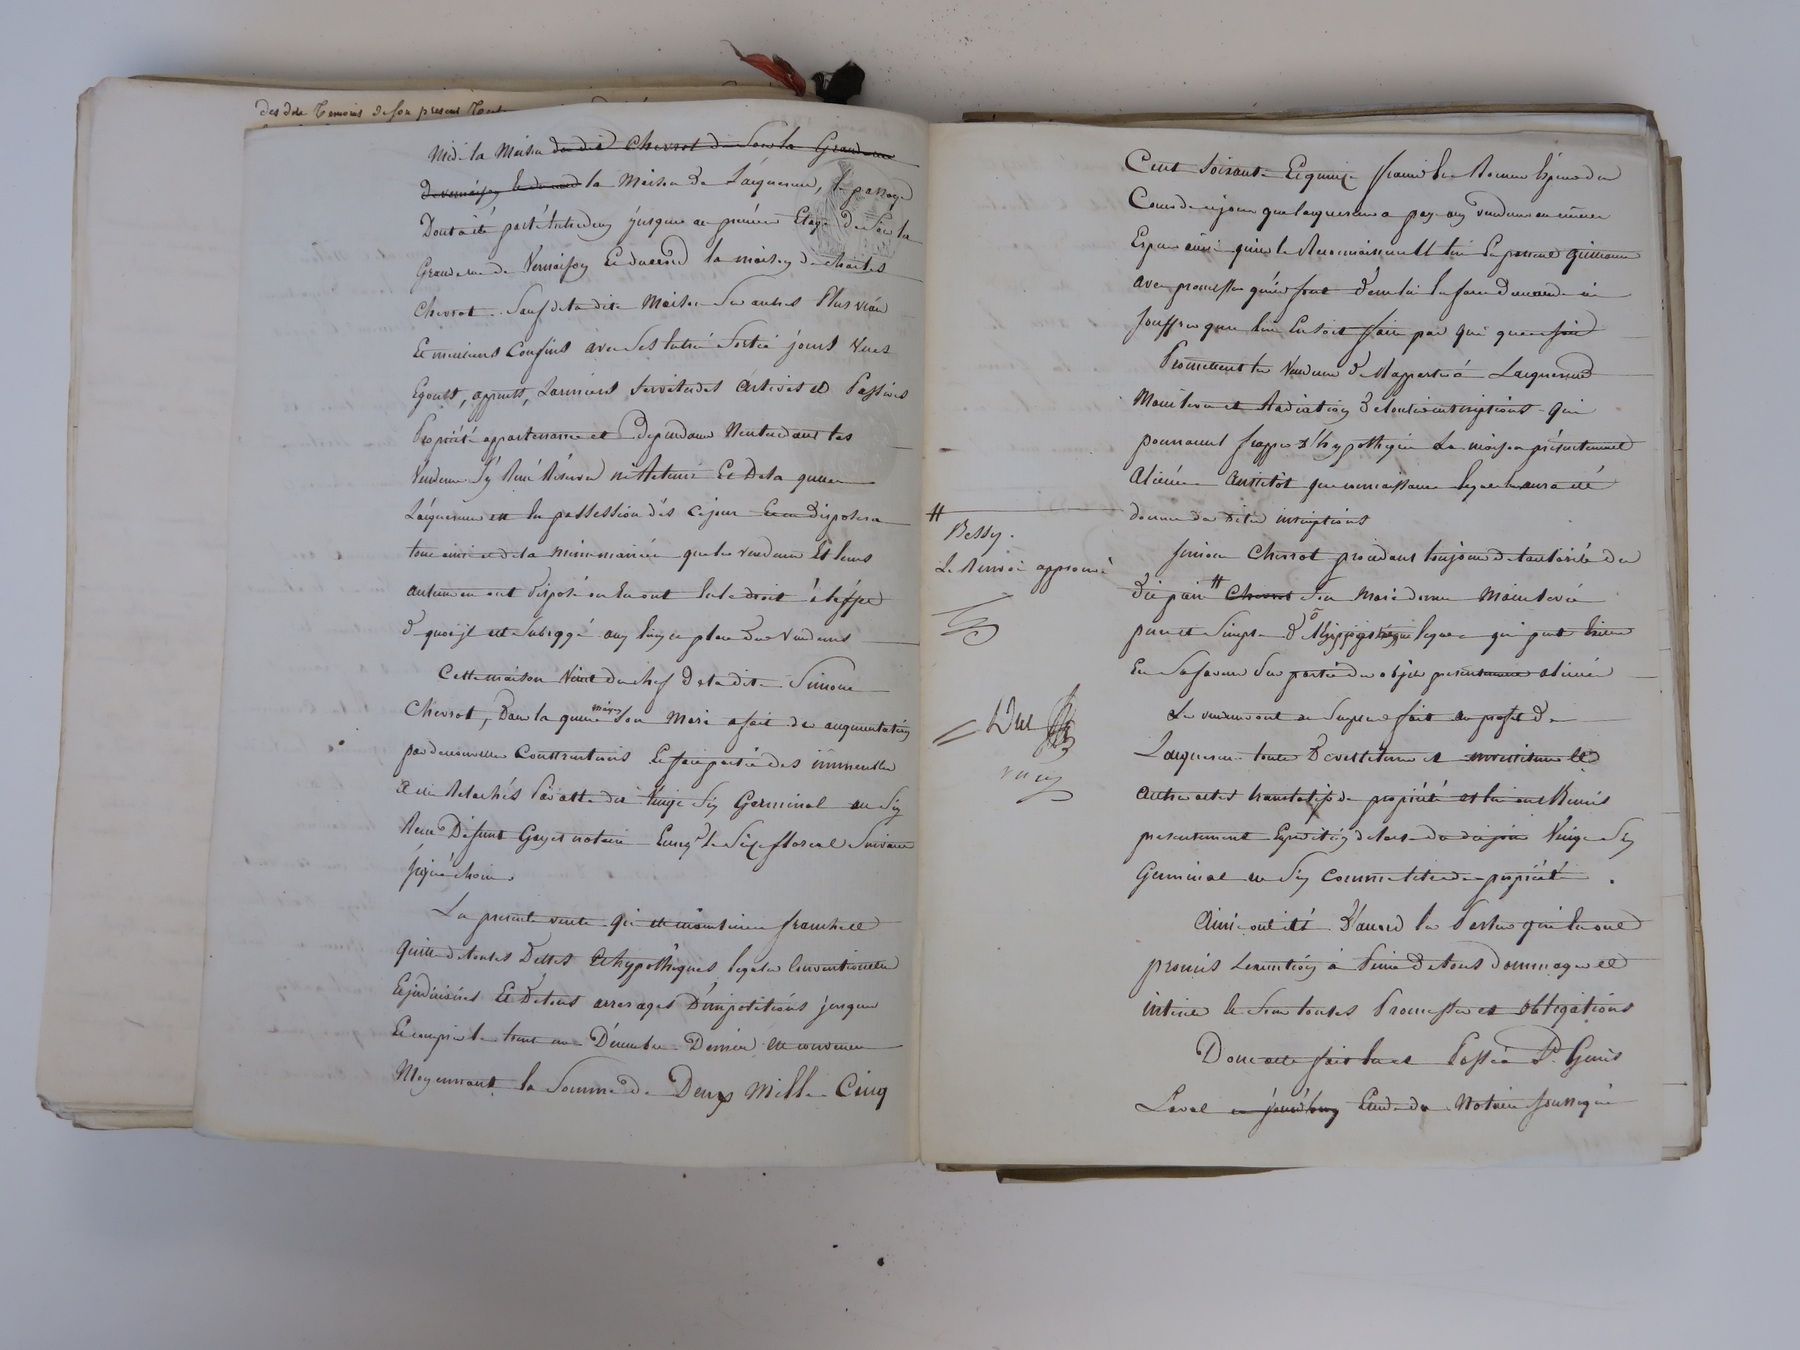 des dits Temoins de son present
Midi la Maison du dit Chevrot de Sous la Grande rue
De vernaison le devant la Maison De L'acquereur, le passage
Dont a été parlé s'étendant jusques au premier Etage De Sous la
Grande rue de Vernaison Et du nord la maison de charles
Chevrot. Sauf de la dite Maison Ses autres Plus vrais
Et meilleurs Confins avec Ses Entrée Sortie jours Vues
Egouts, appents, Larmiers Servitudes Actives et Passives
Propriété appartenance et Dependance N'entendant les
Vendeurs S'y Rien Réserver ni Retenir Et De la quelle
L'acquereur en la possession dès ce jour Et en disposera
tout ainsi et de la même manière que les vendeurs Et leurs
auteurs en ont disposé ou en ont eu le droit à l'effet
De quoi il est Subrogé aux lieu et place Des Vendeurs
Cette maison Vient du chef De la dite Simone
Chevrot, Dans la quelle maison Son Mari a fait des augmentations
par de nouvelles Constructions Et fait partie des immeubles
a elle Relachés Par acte du Vingt Six Germinal an Six
Reçu Défunt Guyot notaire Enreg.é le Six floreal Suivant
signé choin.
La presente vente qui est moyennant franche et
quitte de toutes Dettes Et hypothèques legales Conventionelles
Et judiciaires Et De tous arrerages D'impositions jusques
Et compris le trente un Décembre Dernier est convenue
Moyennant la Somme De Deux Mille Cinq
Cent Soixante Et quinze francs En Bonnes Espèces du
Cours de ce jour que l'acquereur a payé aux Vendeurs en mêmes
Especes ainsi qu'ils le Reconnaissent Et lui En passent quittance
avec promesse qu'ils font d'en lui En faire Demande ni
Souffrir que lui En soit faite par qui que ce soit
Promettent les Vendeurs De Rapporter à L'acquereur
Main levée et Radiation De toutes inscriptions qui
pourraient frapper D'hypothèque La maison présentement
Aliénée Aussitôt que connaissance légale leur aura été
donnée des dites inscriptions
Simone Chevrot procédant toujours de l'autorité du
dit pair # Chevrot Son Mari donne Main levée
pure et Simple D' hypothèque légale qui peut Exister
En Sa faveur Sur partie des objets presentement aliénés
Les vendeurs ont au Surplus fait au profit De
L'acquereur toutes Devestitures et investitures et
autres actes translatifs de propriété et lui ont Remis
presentement Expédition de l'acte du dit jour Vingt Six
Germinal an Six Comme titre de propriété.
Ainsi ont été D'accord les Parties qui En ont
promis L'execution à Peine De tous dommages et
intérêts Et Sous toutes Promesses et obligations
Dont acte fait lu et Passé à St. Genis
Laval Etude du Notaire soussigné
#
Bessy.
Le Renvoi approuvé